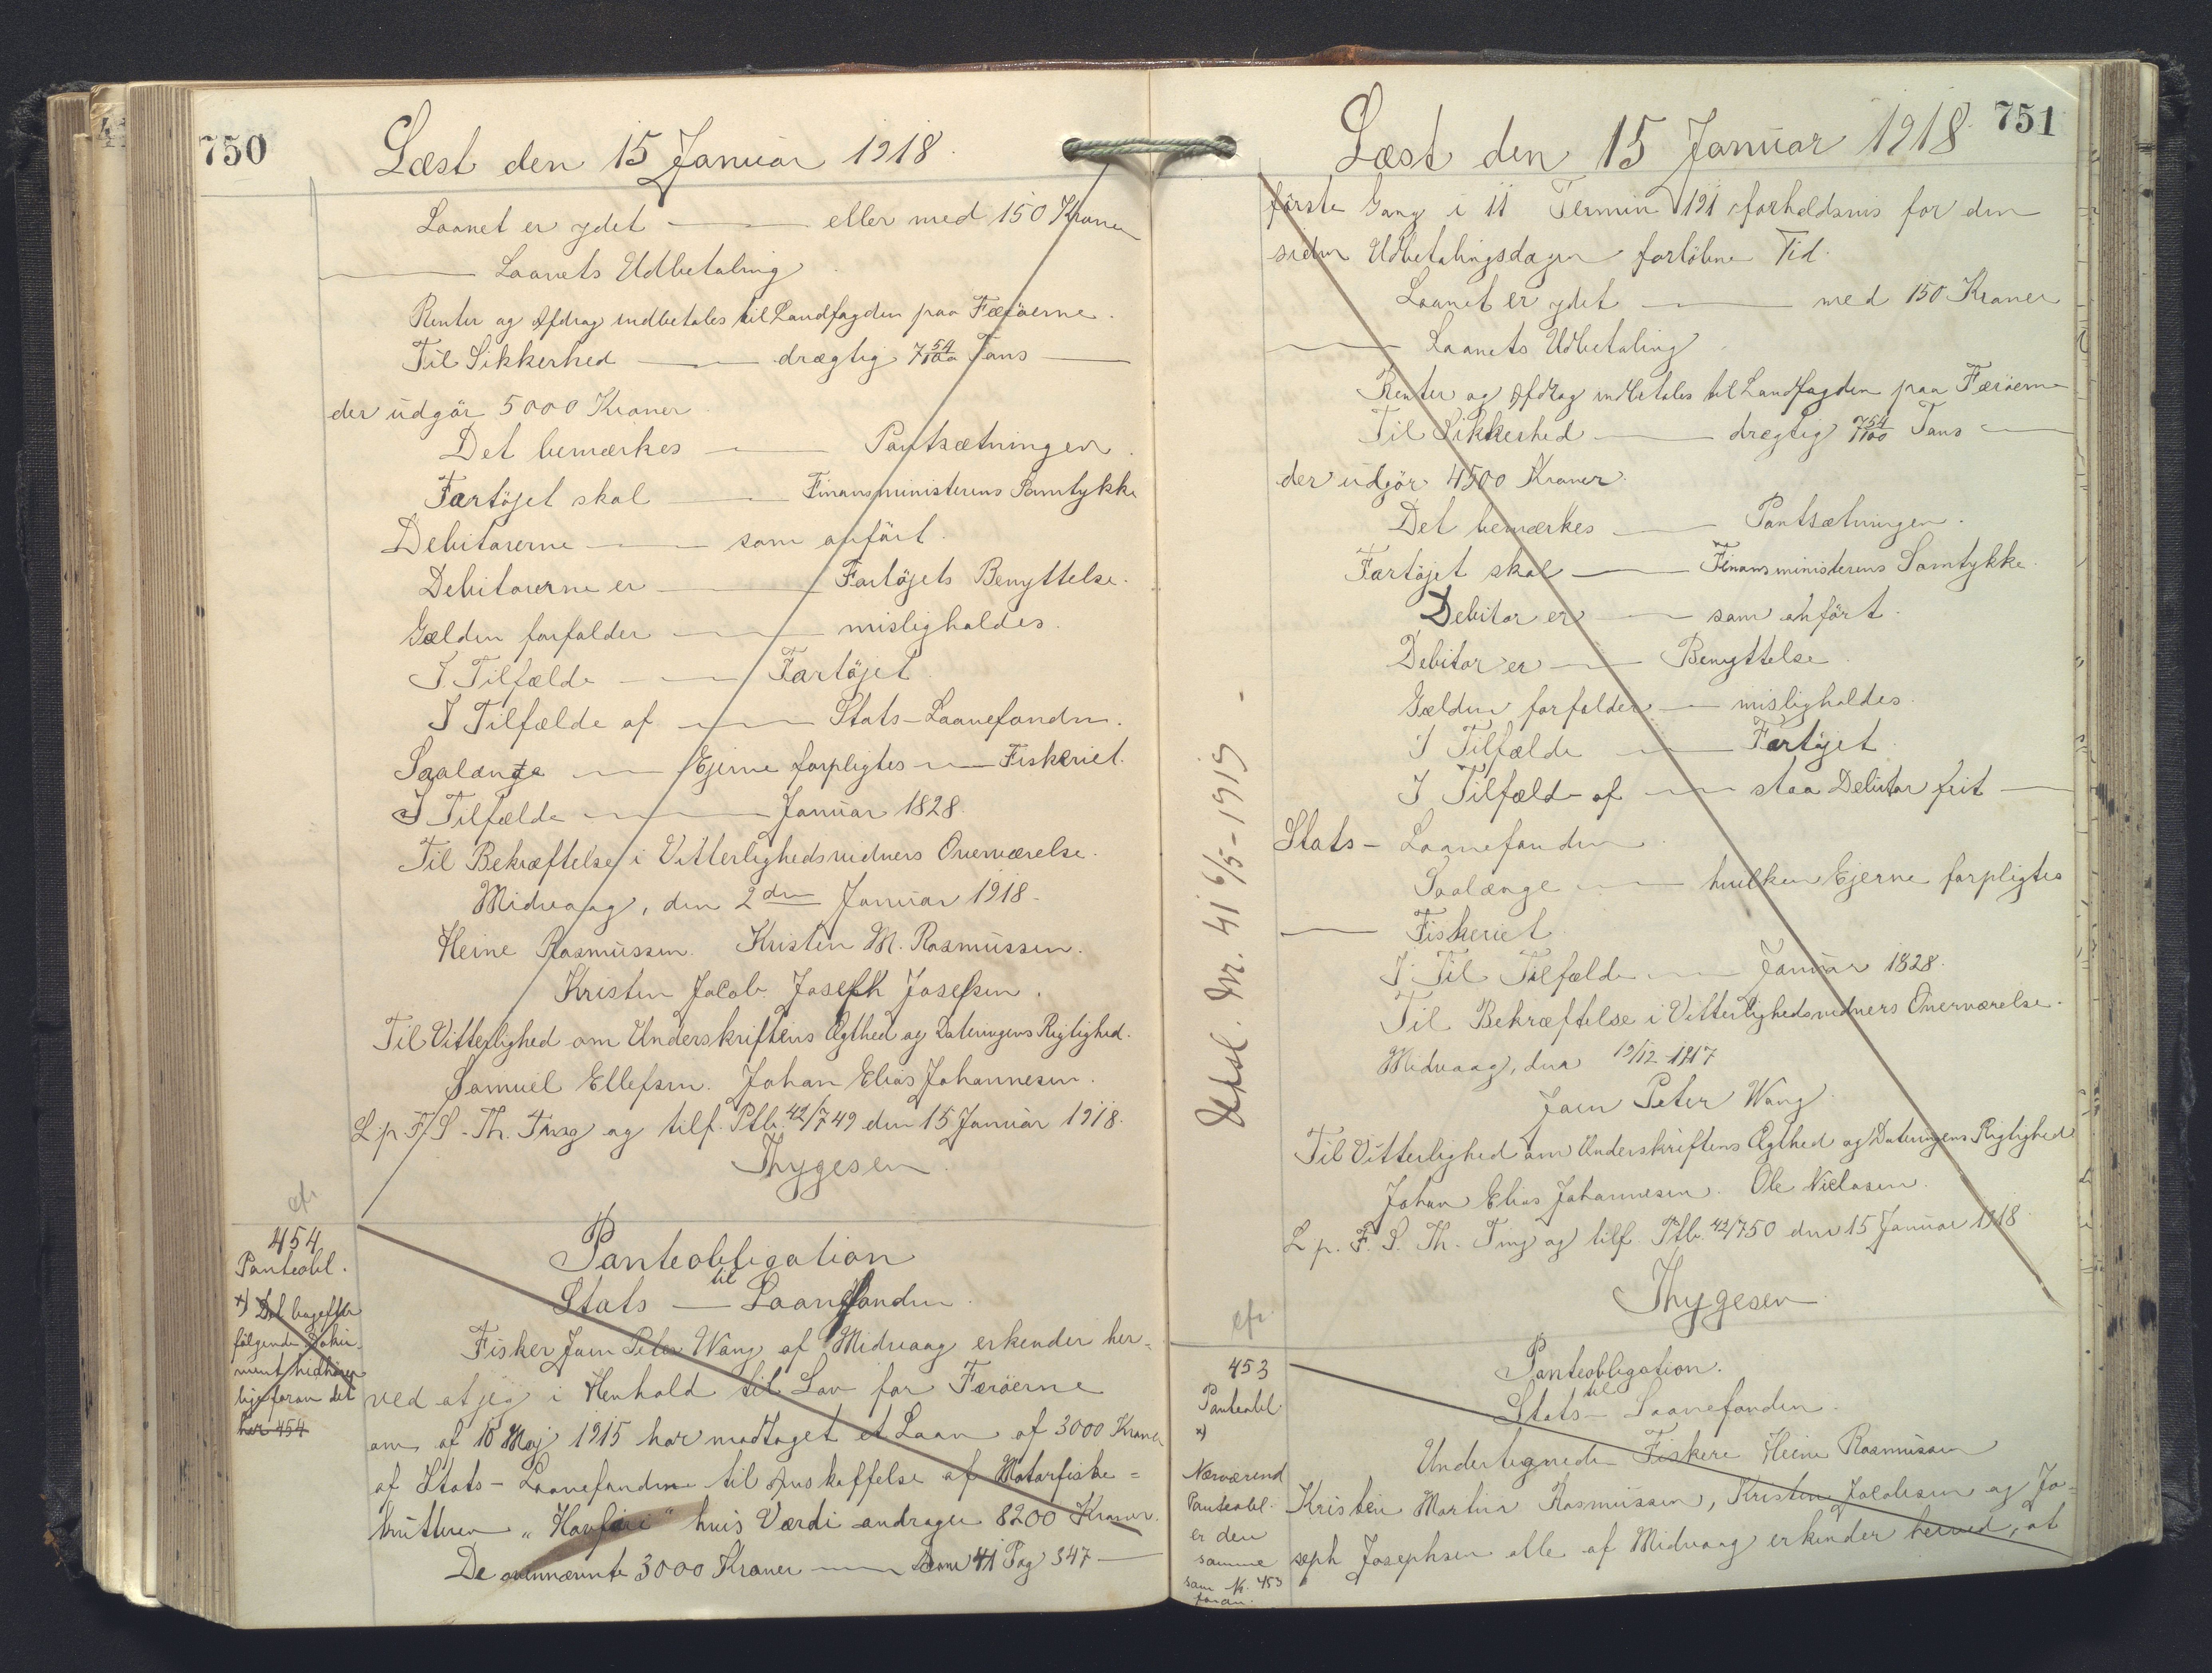 750
Læst den 15 Januar 1918.
Laanet er ydet — eller med 150 Kroner
— Laanets Udbetaling.
Renter og Afdrag indbetales til Landfogden paa Færøerne.
Til Sikkerhed — drægtig 7 54/100 Tons —
der udgör 5000 Kroner.
Det bemærkes — Pantsætningen.
Fartöjet skal — Finansministerens Samtykke
Debitorerne — som anfört.
Debitorerne er — Fartöjets Benyttelse.
Gælden forfalder — misligholdes.
I Tilfælde — Fartöjet.
I Tilfælde af — Stats-Laanefonden.
Saalænge — Ejerne forpligtes — Fiskeriet.
I Tilfælde — Januar 1828.
Til Bekræftelse i Vitterlighedsvidners Overværelse.
Midvaag, den 2den Januar 1918.
Heine Rasmussen. Kristen M. Rasmussen.
Kristen Jacob. Joseph Josefsen.
Til Vitterlighed om Underskriftens Ægthed og Dateringens Rigtighed.
Samuel Ellefsen. Johan Elias Johannesen.
L. p. F. S. Th. Ting og tilf. Ptb. 42/749 den 15 Januar 1918.
Thygesen
cfr
454
Panteobl.
x) Det bagefter
følgende Doku-
ment
lige foran det
her 454
Panteobligation
til
Stats — Laanefonden.
Fisker Joen Peter Wang af Midvaag erkender her-
ved at jeg i Henhold til Lov for Færøerne
om af 10 Maj 1915 har modtaget et Laan af 3000 Kroner
af Stats-Laanefonden til Anskaffelse af Motorfiske-
kutteren „Havfari" hvis Værdi andrager 8200 Kroner.
De ovennævnte 3000 Kroner — 41 Pag 347 —
751
Læst den 15 Januar 1918.
förste Gang i 11 Termin 191 forholdsvis for den
siden Udbetalingsdagen forløbne Tid.
Laanet er ydet — med 150 Kroner
— Laanets Udbetaling
Renter og Afdrag indbetales til Landfogden paa Færøerne
Til Sikkerhed — drægtig 7 54/100 Tons —
der udgör 4500 Kroner.
Det bemærkes — Pantsætningen.
Fartöjet skal — Finansministerens Samtykke.
Debitor er — som anfört.
Debitor er — Benyttelse.
Gælden forfalder — misligholdes.
I Tilfælde — Fartöjet.
I Tilfælde af — staa Debitor frit —
Stats-Laanefonden.
Saalænge — hvilken Ejerne forpligtes
— Fiskeriet.
I Til Tilfælde — Januar 1828.
Til Bekræftelse i Vitterlighedsvidners Overværelse.
Midvaag, den 19/12 1917
Joen Peter Wang.
Til Vitterlighed om Underskriftens Ægthed og Dateringens Rigtighed
Johan Elias Johannesen. Ole Nielasen.
L. p. F. S. Th. Ting og tilf. Ptb. 42/750 den 15 Januar 1918
Thygesen
Nr. 41 6/5-1919 -
cfr.
453
Panteobl.
x)
Nærværend
Panteobl.
er den
samme
som N. 453
foran.
Panteobligation.
til
Stats-Laanefonden.
Undertegnede Fiskere Heine Rasmussen
Kristen Martin Rasmussen, Kristen Jacobsen og Jo-
seph Josephsen alle af Midvaag erkender herved, at